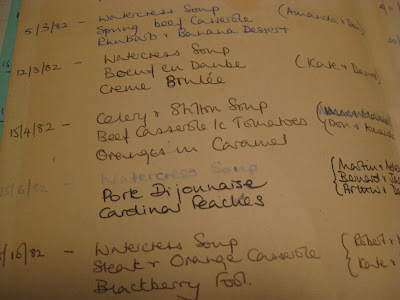 Watercress Soup
5/3/82 - Spring beef Casserole (Amanda +
Rhubarb + Banana Dessert
Watercress Soup
12/3/82 - Boeuf en Daube (Kate +
Creme Brulée
Celery + Stilton Soup
15/4/82 - Beef Casserole /c Tomatoes (Don + Amanda
Oranges in Caramel
Watercress Soup
/6/82 - Pork Dijonnaise {Martin +
Cardinal Peaches {Bernard +
Watercress Soup {Robert +
/10/82 - Steak + Orange Casserole {Kate +
Blackberry Fool.